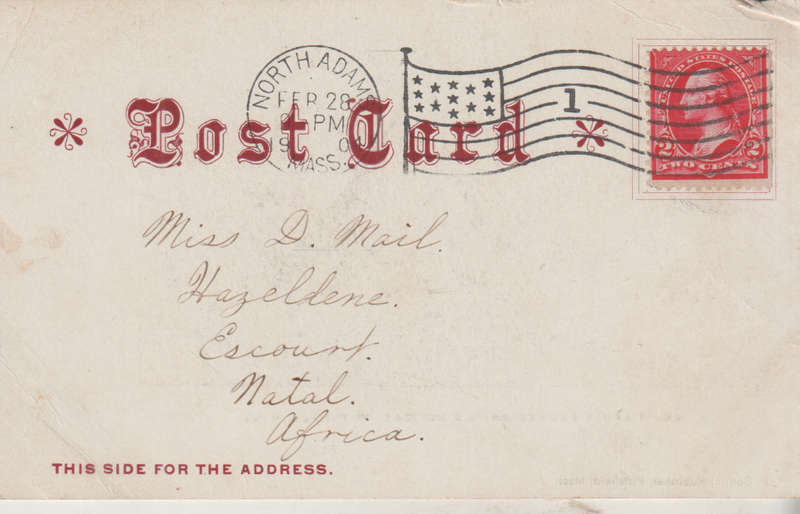 NORTH ADAMS
FEB 28
PM
MASS.
1
Post Card
UNITED STATES POSTAGE
2 2
TWO CENTS
Miss D. Mail.
Hazeldene.
Escourt.
Natal.
Africa.
THIS SIDE FOR THE ADDRESS.